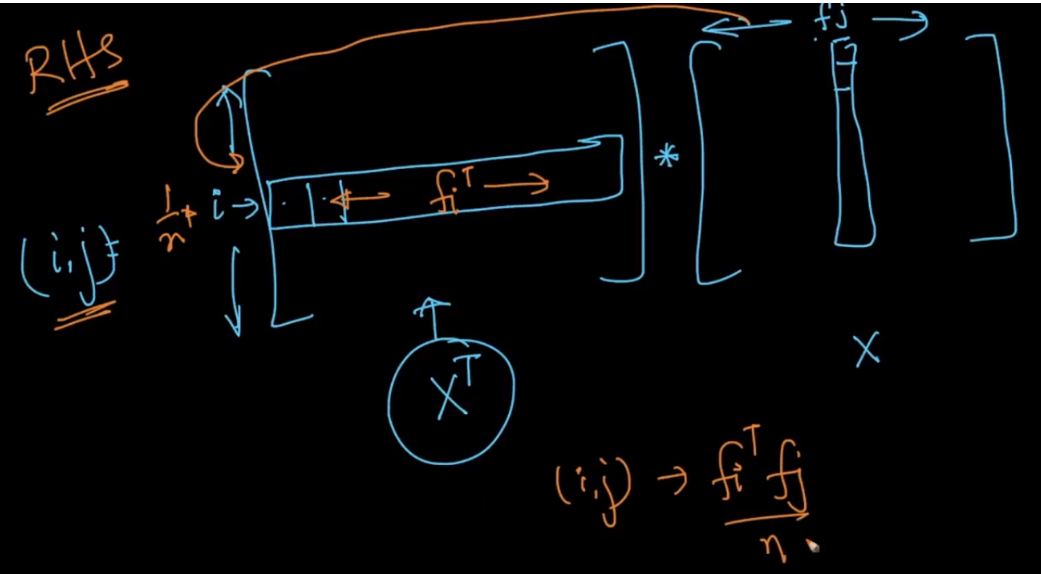 RHS
fj
1/n * i → fiᵀ *
(i,j) =
Xᵀ X
(i,j) → fiᵀ fj / n